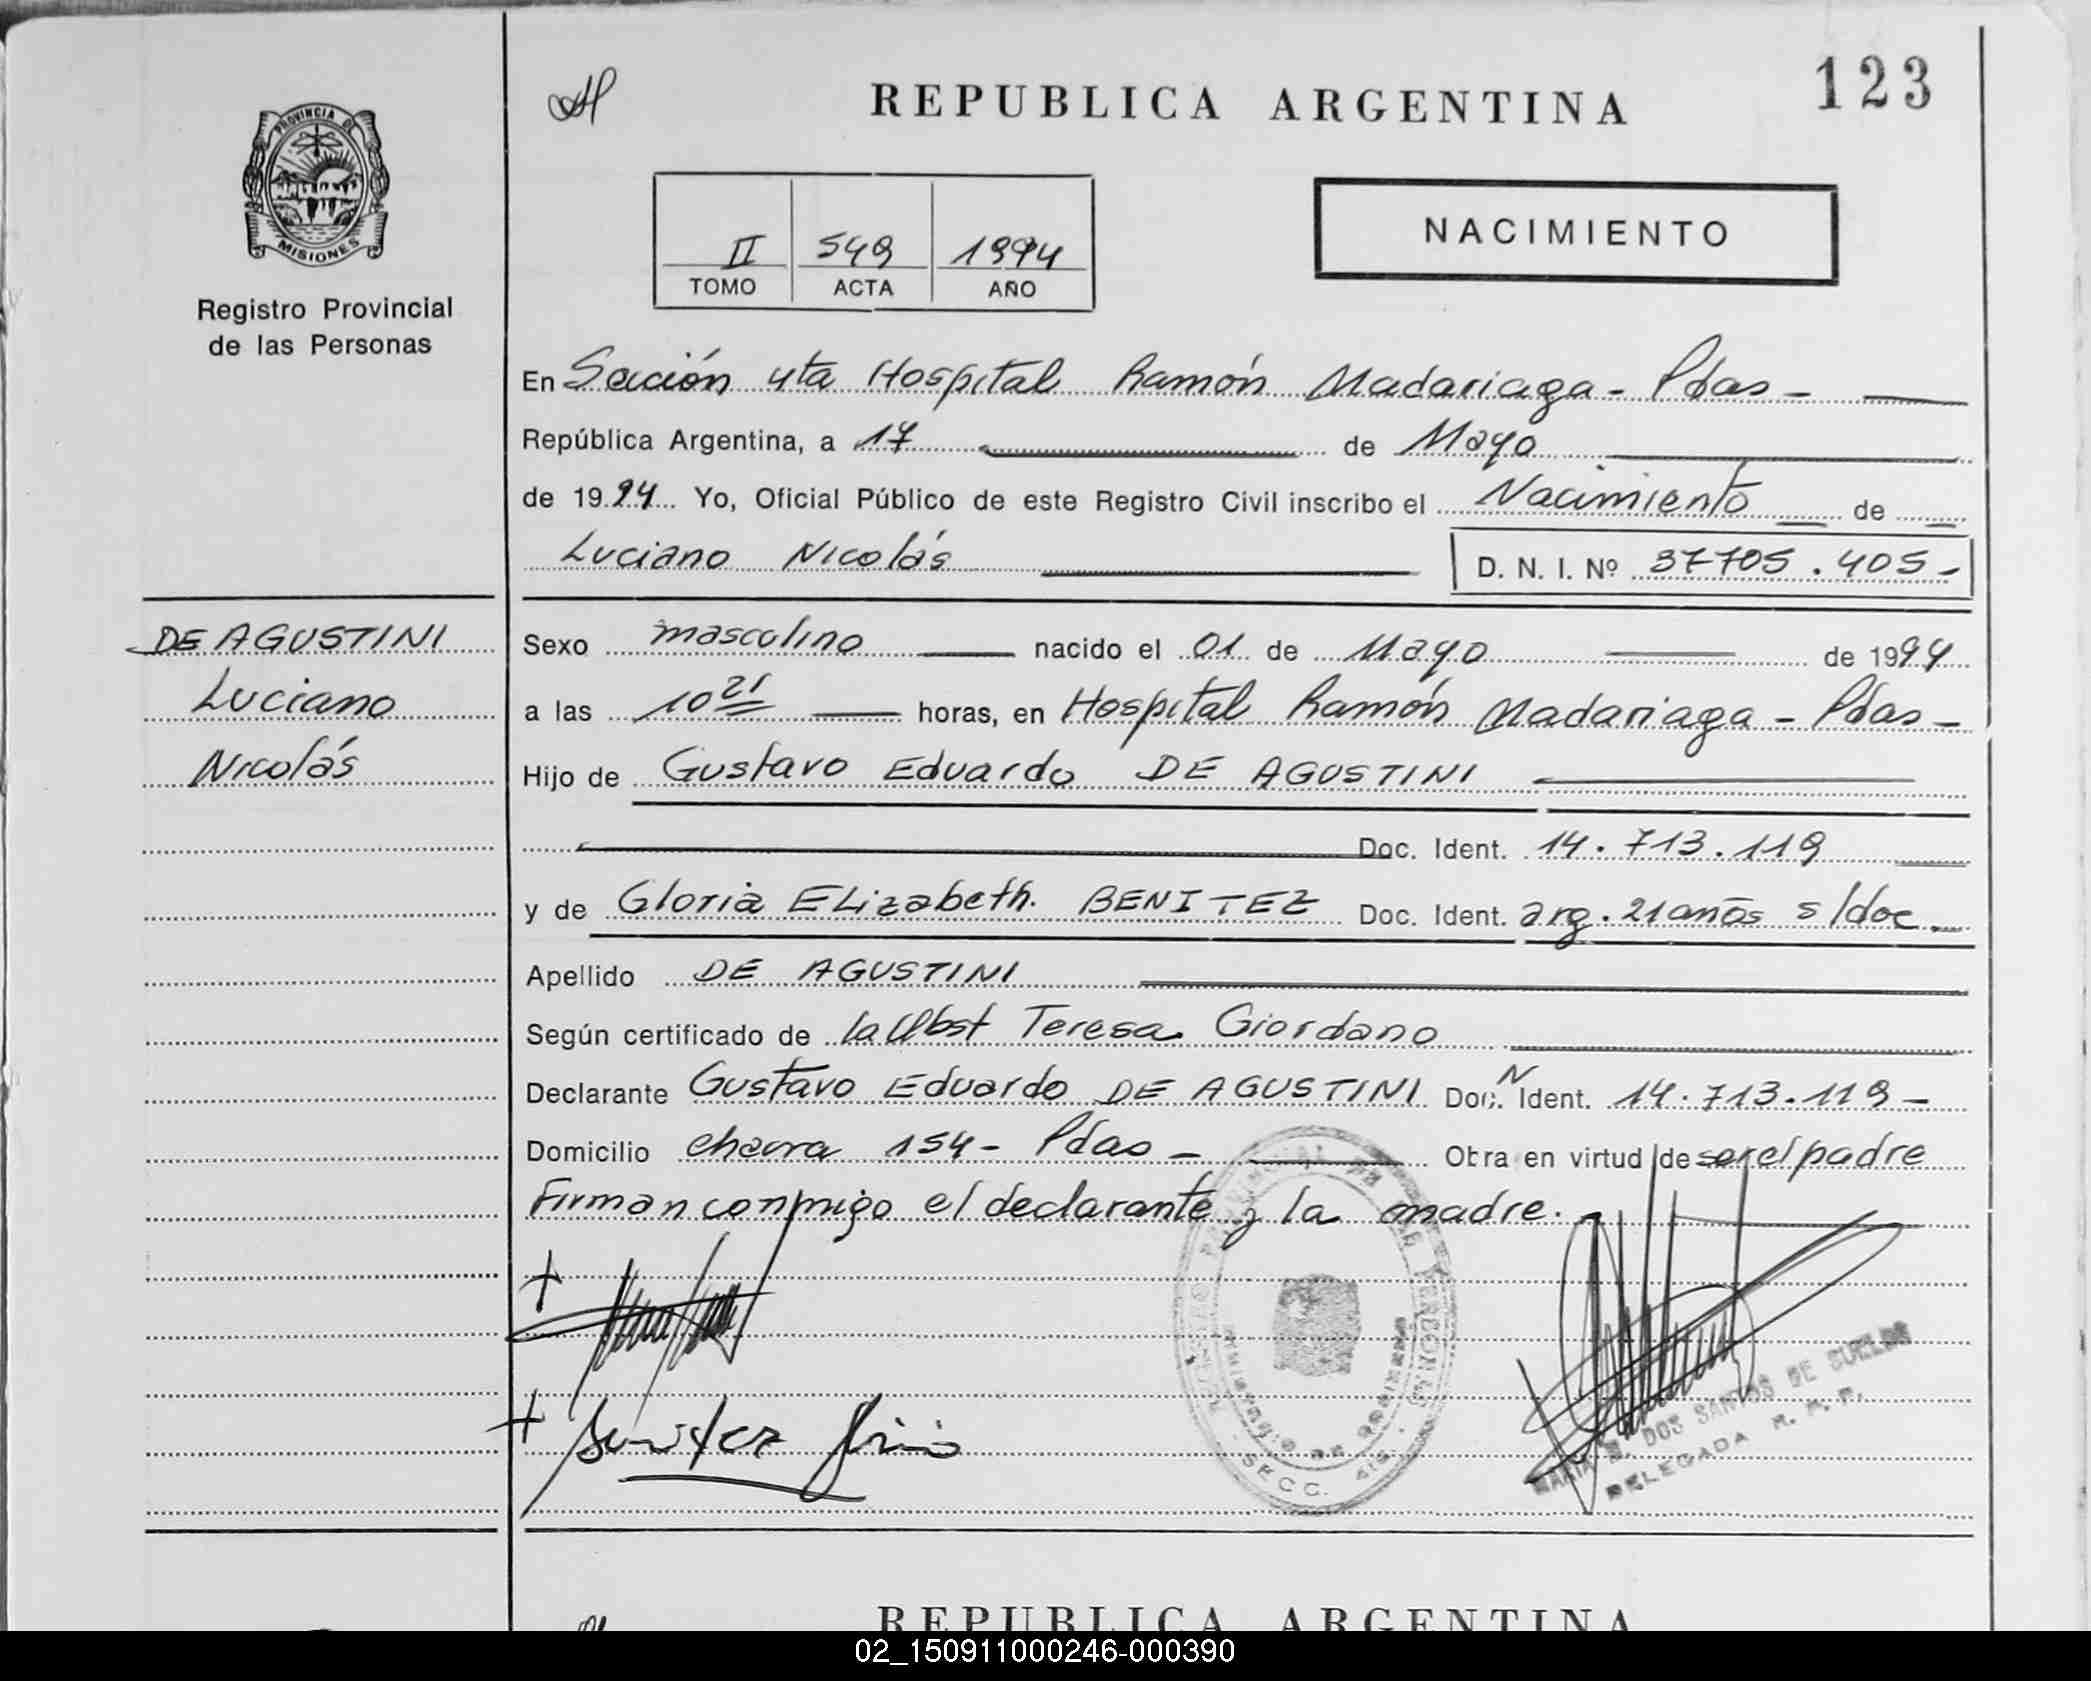 123
REPUBLICA ARGENTINA
PROVINCIA DE
MISIONES
Registro Provincial
de las Personas
II 549 1994
TOMO ACTA AÑO
NACIMIENTO
En Sección 4ta Hospital Ramón Madariaga - Pdas -
República Argentina, a 17 de Mayo
de 1994 Yo, Oficial Público de este Registro Civil inscribo el Nacimiento de
Luciano Nicolás D. N. I. Nº 37705.405-
DE AGUSTINI
Luciano
Nicolás
Sexo masculino nacido el 01 de Mayo de 1994
a las 10 21 horas, en Hospital Ramón Madariaga - Pdas -
Hijo de Gustavo Eduardo DE AGUSTINI
Doc. Ident. 14.713.119
y de Gloria Elizabeth. BENITEZ Doc. Ident. arg. 21 años s/doc.
Apellido DE AGUSTINI
Según certificado de la Obst Teresa Giordano
Declarante Gustavo Eduardo DE AGUSTINI Doc. N Ident. 14.713.119 -
Domicilio chacra 154 - Pdas - Obra en virtud de ser el padre
Firman conmigo el declarante y la madre.
Benitez
SECC. 4ta
DOS SANTOS DE
DELEGADA R. P. P.
REPUBLICA ARGENTINA
02_150911000246-000390